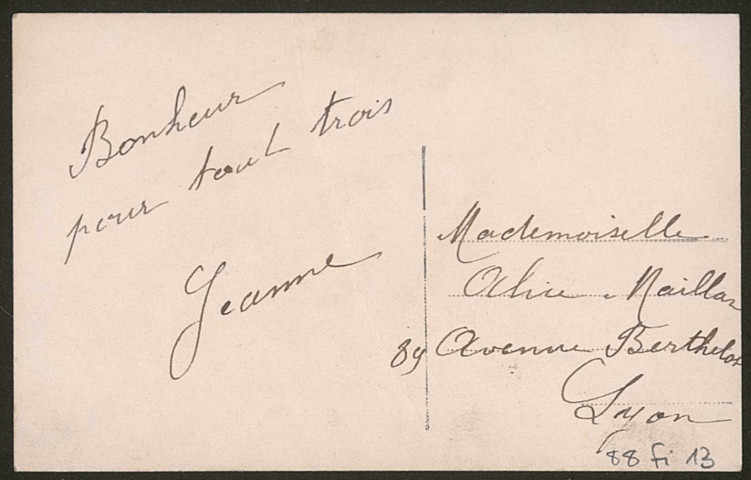 Bonheur
pour tout trois
Jeanne
Mademoiselle
Alice Maillar
89 Avenue Berthelot
Lyon
88 fi 13